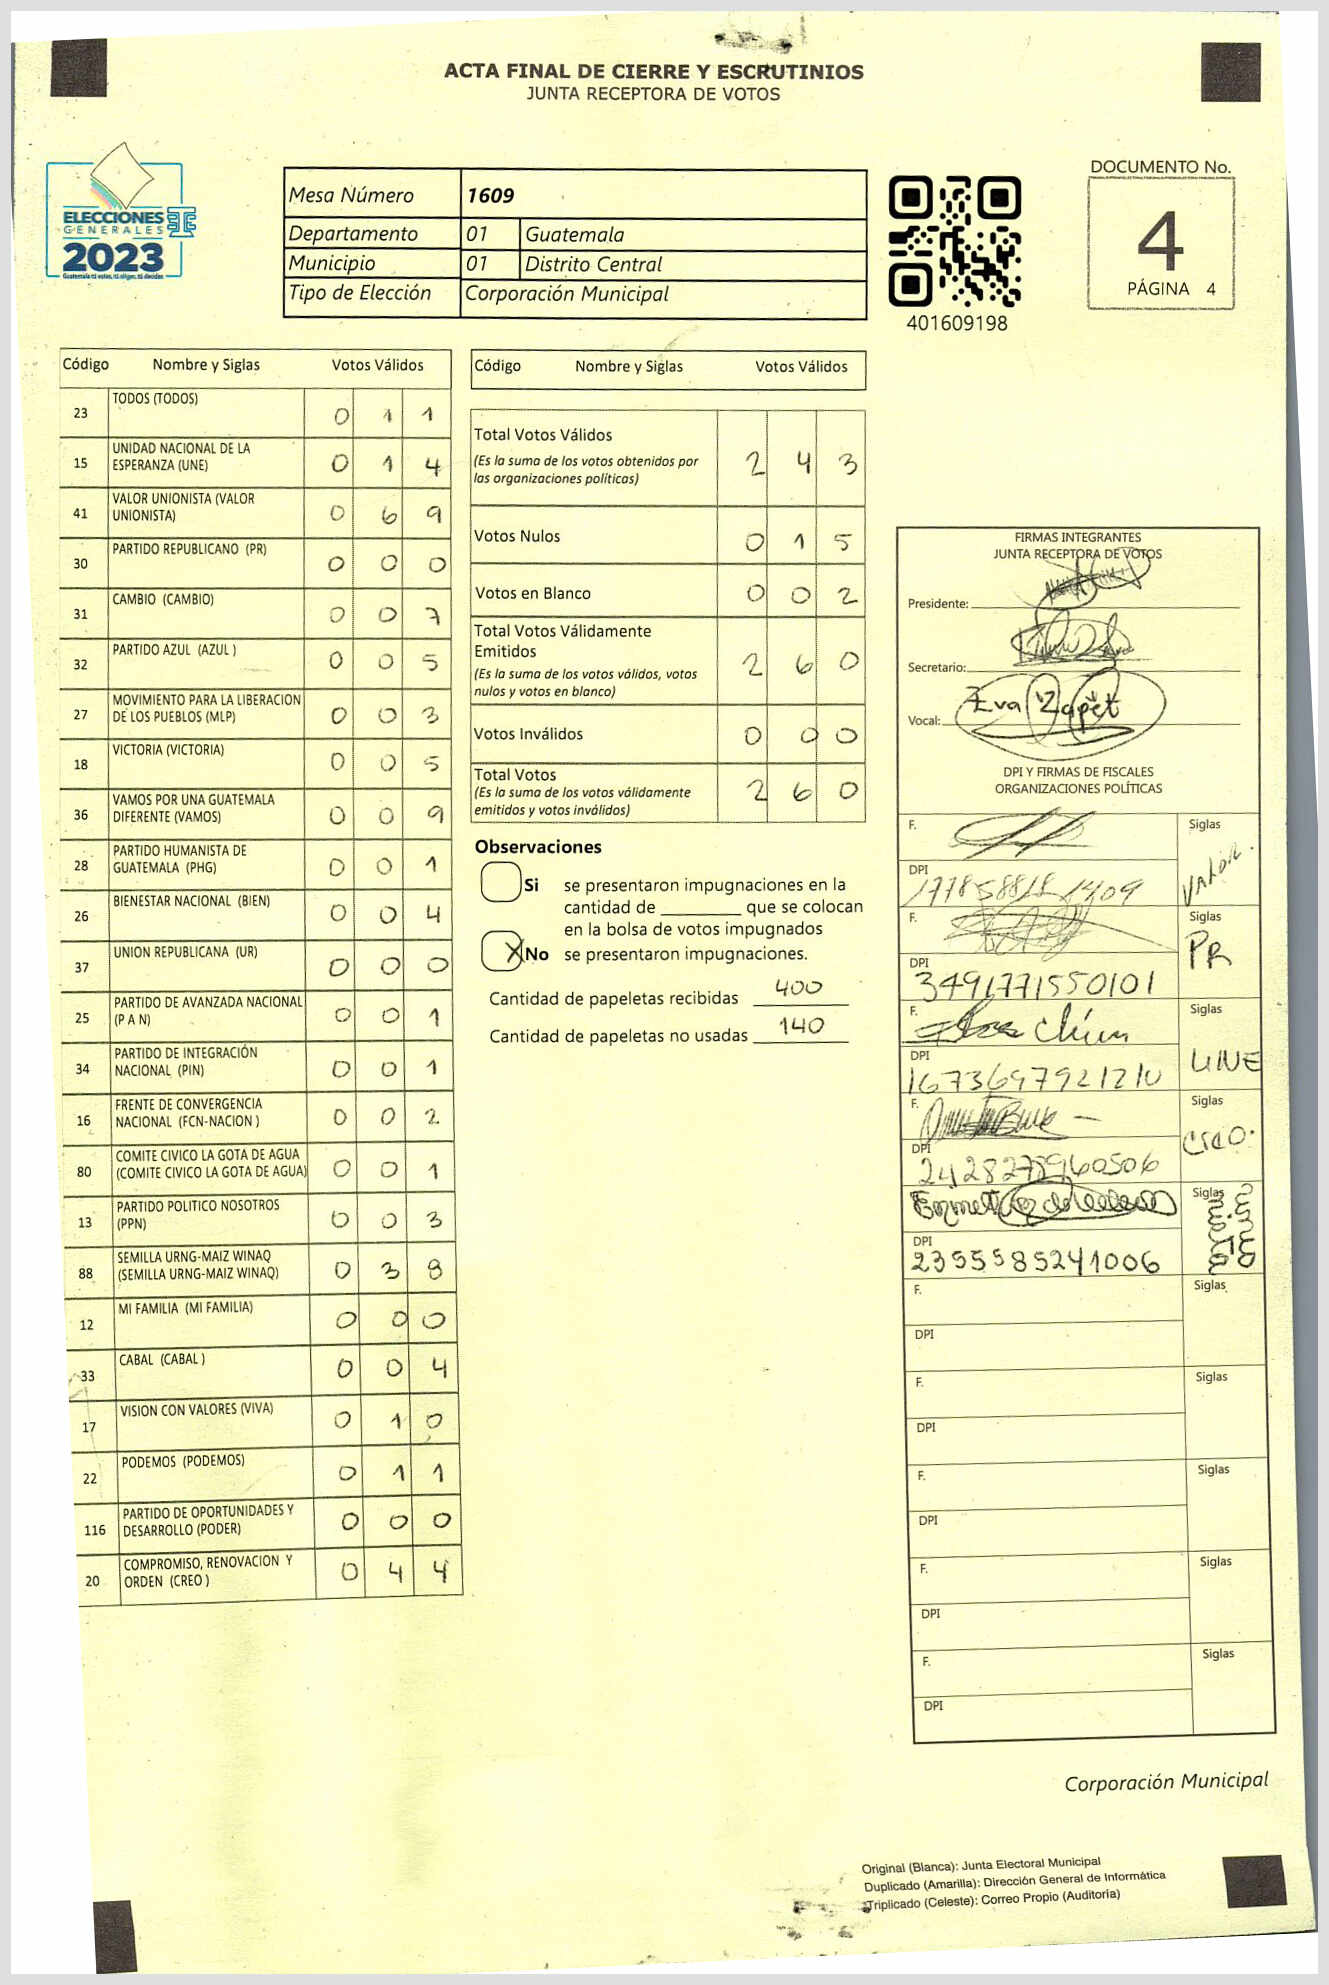 ACTA FINAL DE CIERRE Y ESCRUTINIOS
JUNTA RECEPTORA DE VOTOS
ELECCIONES
GENERALES
2023
Guatemala tú votas, tú eliges, tú decides
Mesa Número 1609
Departamento 01 Guatemala
Municipio 01 Distrito Central
Tipo de Elección Corporación Municipal
401609198
DOCUMENTO No.
4
PÁGINA 4
Código Nombre y Siglas Votos Válidos
23 TODOS (TODOS) 0 1 1
15 UNIDAD NACIONAL DE LA
ESPERANZA (UNE) 0 1 4
41 VALOR UNIONISTA (VALOR
UNIONISTA) 0 6 9
30 PARTIDO REPUBLICANO (PR) 0 0 0
31 CAMBIO (CAMBIO) 0 0 7
32 PARTIDO AZUL (AZUL ) 0 0 5
27 MOVIMIENTO PARA LA LIBERACION
DE LOS PUEBLOS (MLP) 0 0 3
18 VICTORIA (VICTORIA) 0 0 5
36 VAMOS POR UNA GUATEMALA
DIFERENTE (VAMOS) 0 0 9
28 PARTIDO HUMANISTA DE
GUATEMALA (PHG) 0 0 1
26 BIENESTAR NACIONAL (BIEN) 0 0 4
37 UNION REPUBLICANA (UR) 0 0 0
25 PARTIDO DE AVANZADA NACIONAL
(P A N) 0 0 1
34 PARTIDO DE INTEGRACIÓN
NACIONAL (PIN) 0 0 1
16 FRENTE DE CONVERGENCIA
NACIONAL (FCN-NACION ) 0 0 2
80 COMITE CIVICO LA GOTA DE AGUA
(COMITE CIVICO LA GOTA DE AGUA) 0 0 1
13 PARTIDO POLITICO NOSOTROS
(PPN) 0 0 3
88 SEMILLA URNG-MAIZ WINAQ
(SEMILLA URNG-MAIZ WINAQ) 0 3 8
12 MI FAMILIA (MI FAMILIA) 0 0 0
33 CABAL (CABAL ) 0 0 4
17 VISION CON VALORES (VIVA) 0 1 0
22 PODEMOS (PODEMOS) 0 1 1
116 PARTIDO DE OPORTUNIDADES Y
DESARROLLO (PODER) 0 0 0
20 COMPROMISO, RENOVACION Y
ORDEN (CREO ) 0 4 4
Código Nombre y Siglas Votos Válidos
Total Votos Válidos
(Es la suma de los votos obtenidos por
las organizaciones políticas) 2 4 3
Votos Nulos 0 1 5
Votos en Blanco 0 0 2
Total Votos Válidamente
Emitidos
(Es la suma de los votos válidos, votos
nulos y votos en blanco) 2 6 0
Votos Inválidos 0 0 0
Total Votos
(Es la suma de los votos válidamente
emitidos y votos inválidos) 2 6 0
Observaciones
Si se presentaron impugnaciones en la
cantidad de ________ que se colocan
en la bolsa de votos impugnados
X No se presentaron impugnaciones.
Cantidad de papeletas recibidas 400
Cantidad de papeletas no usadas 140
FIRMAS INTEGRANTES
JUNTA RECEPTORA DE VOTOS
Presidente:
Secretario:
Vocal: Eva Zapet
DPI Y FIRMAS DE FISCALES
ORGANIZACIONES POLÍTICAS
F. Siglas
VALOR.
DPI
F. Siglas
PR
DPI
3491771550101
F. Siglas
UNE
DPI
F. Siglas
DPI
F. Siglas
DPI
2355585241006
F. Siglas
DPI
F. Siglas
DPI
F. Siglas
DPI
F. Siglas
DPI
F. Siglas
DPI
Corporación Municipal
Original (Blanca): Junta Electoral Municipal
Duplicado (Amarilla): Dirección General de Informática
Triplicado (Celeste): Correo Propio (Auditoría)